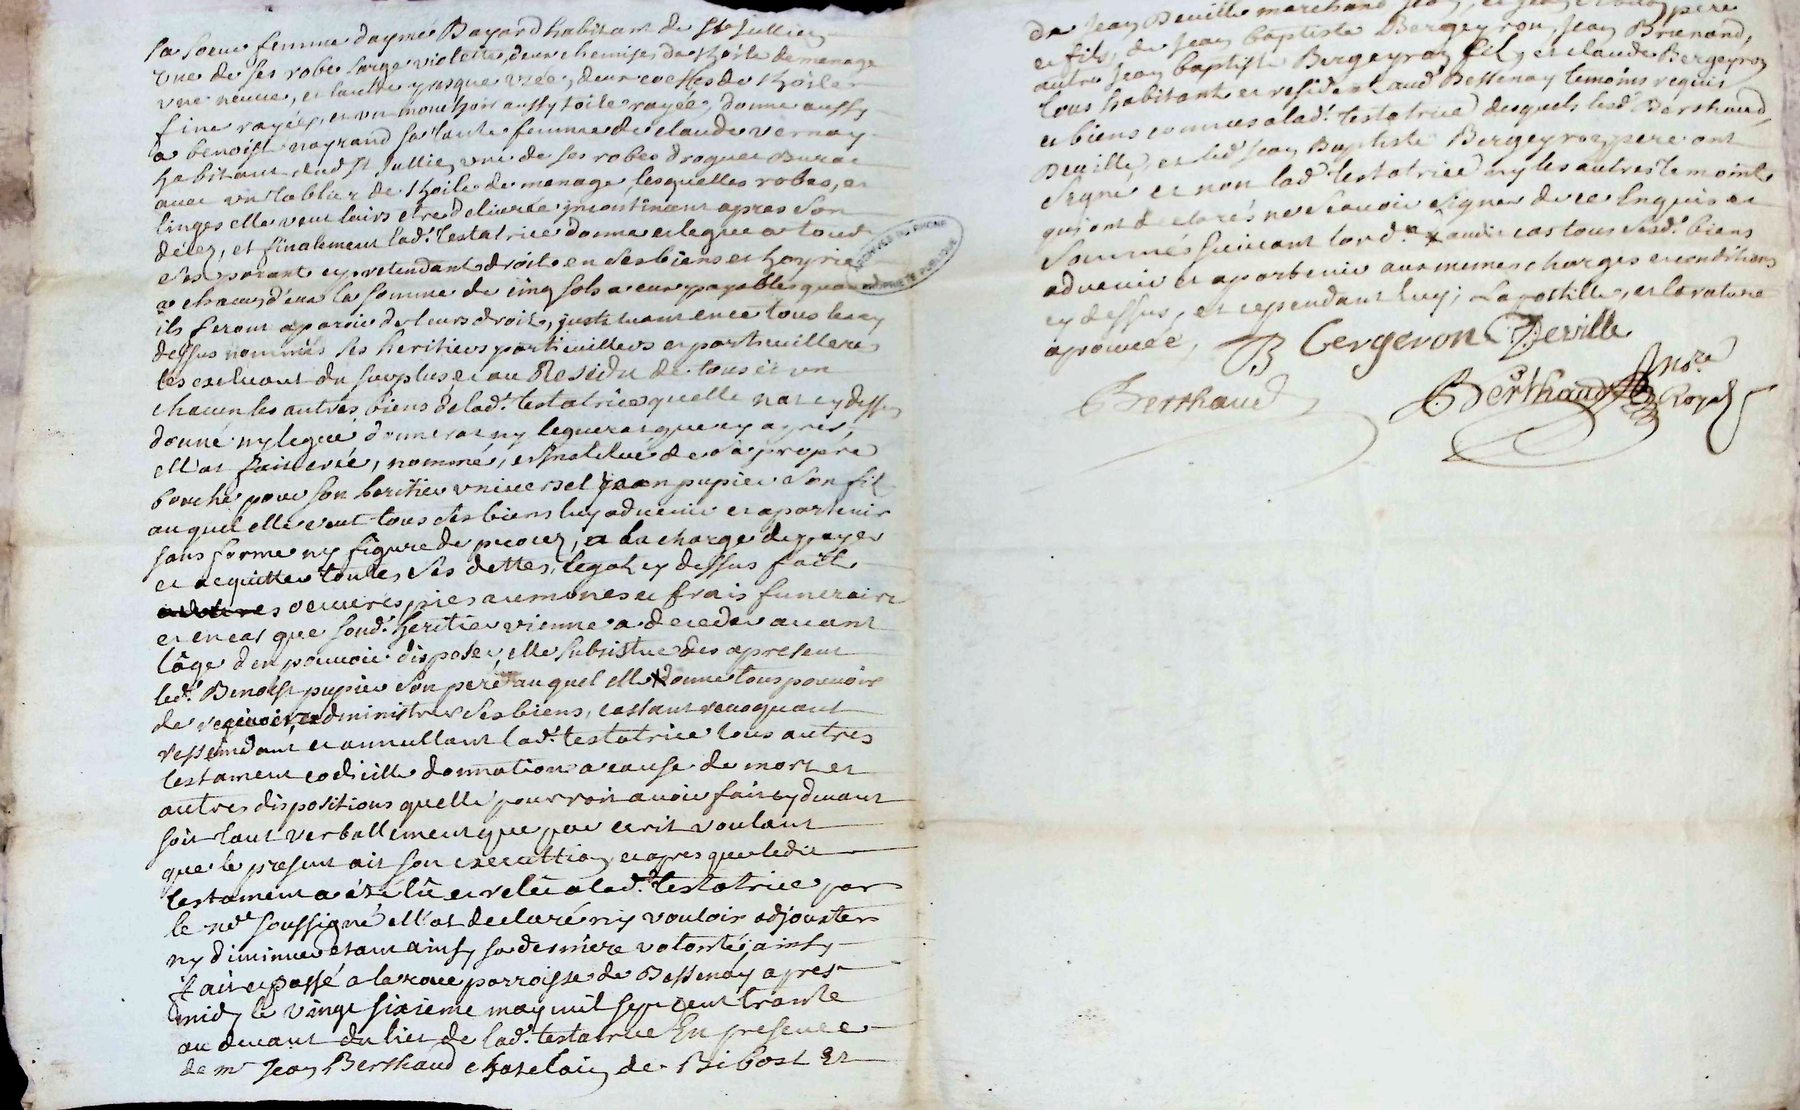 sa soeur femme daymé Bayard habitant de St Jullien
une de ses robe sarge violette, deux chemises de thoile de menage
une neuve, et lautre presque usée, deux coeffes de thoile
fine rayée, et un mouchoir aussy toile rayée, donne aussy
a benoist nayrand sa tante femme de claude vernay
habitant dud St Jullien une de ses robes droguet Burat
avec un tablier de thoile de menage, lesquelles robes, et
linges elle veut leurs etre delivrée incontinant apres son
décez, et finalement lad. testatrice donne et legue a tous
ses parant et pretendant droit en ses biens et hoyrie
a chacun d'eux la somme de cinq sols a eux payables quand
ils feront aparoir de leurs droit, instituant en ce tous les cy
dessus nommés ses heritiers particuillers et particuilleres
les excluant du surplus, et au Residu de tous et un
chacun les autres biens de lad. testatrice quelle na cy dessus
donné ny legué donnerat ny leguerat que cy apres,
ell'at fait creé, nommé, et institué de sa propre
bouche pour son heritier universel jean pupier son fil
auquel elle veut tous ses biens luy advenir et apartenir
sans forme ny figure de procez, a la charge de payer
et acquitter toutes ses dettes, legat cy dessus fait
oeuvres pies aumones et frais funeraire
et en cas que sond. heritier vienne a deceder avant
l'age d'en pouvoir disposer, elle substitue des apresent
led. Benoist pupier son pere auquel elle donne tous pouvoir
de regir et administrer ses biens, cassant revoquant
ressindant et annullant lad. testatrice tous autres
testament codicille donnation a cause de mort et
autres dispositions quelle pourroit avoir fait cy devant
soit tant verballement que par ecrit voulant
que le present ait son execution, et apres que ledit
testament a été lû et relû a lad. testatrice par
le nre soussigné ell'at declaré n'y vouloir adjouster
ny diminuer etant ainsy sa derniere volonté, ainsy
fait et passé a la roue parroisse de Bessenay apres
midy le vingt sixieme may mil sept cent trante
au devant du lict de lad. testatrice En presence
de mr Jean Berthaud chatelain de Bibost Et
de Jean Deville marchand pere
et fils, de Jean baptiste Bergeyron, Jean Brunand,
autre Jean baptiste Bergeyron fils, et claude Bergeyron
tous habitant et resident aud. Bessenay temoins requis
et biens connus a lad. testatrice desquels lesd. Berthaud,
Deville, et led. Jean Baptiste Bergeyron pere ont
signé et non lad. testatrice ny les autres temoins
qui ont declarés ne scavoir signer de ce enquis et
sommés suivant lord.ce audit cas tous sesd. biens
advenir et apartenir aux memes charges et conditions
cy dessus, et cependant luy, Lapostille, et la rature
aprouvée,
B Bergeron Deville
Berthaud
Berthaud Nre Royal
ARCHIVES DU RHONE